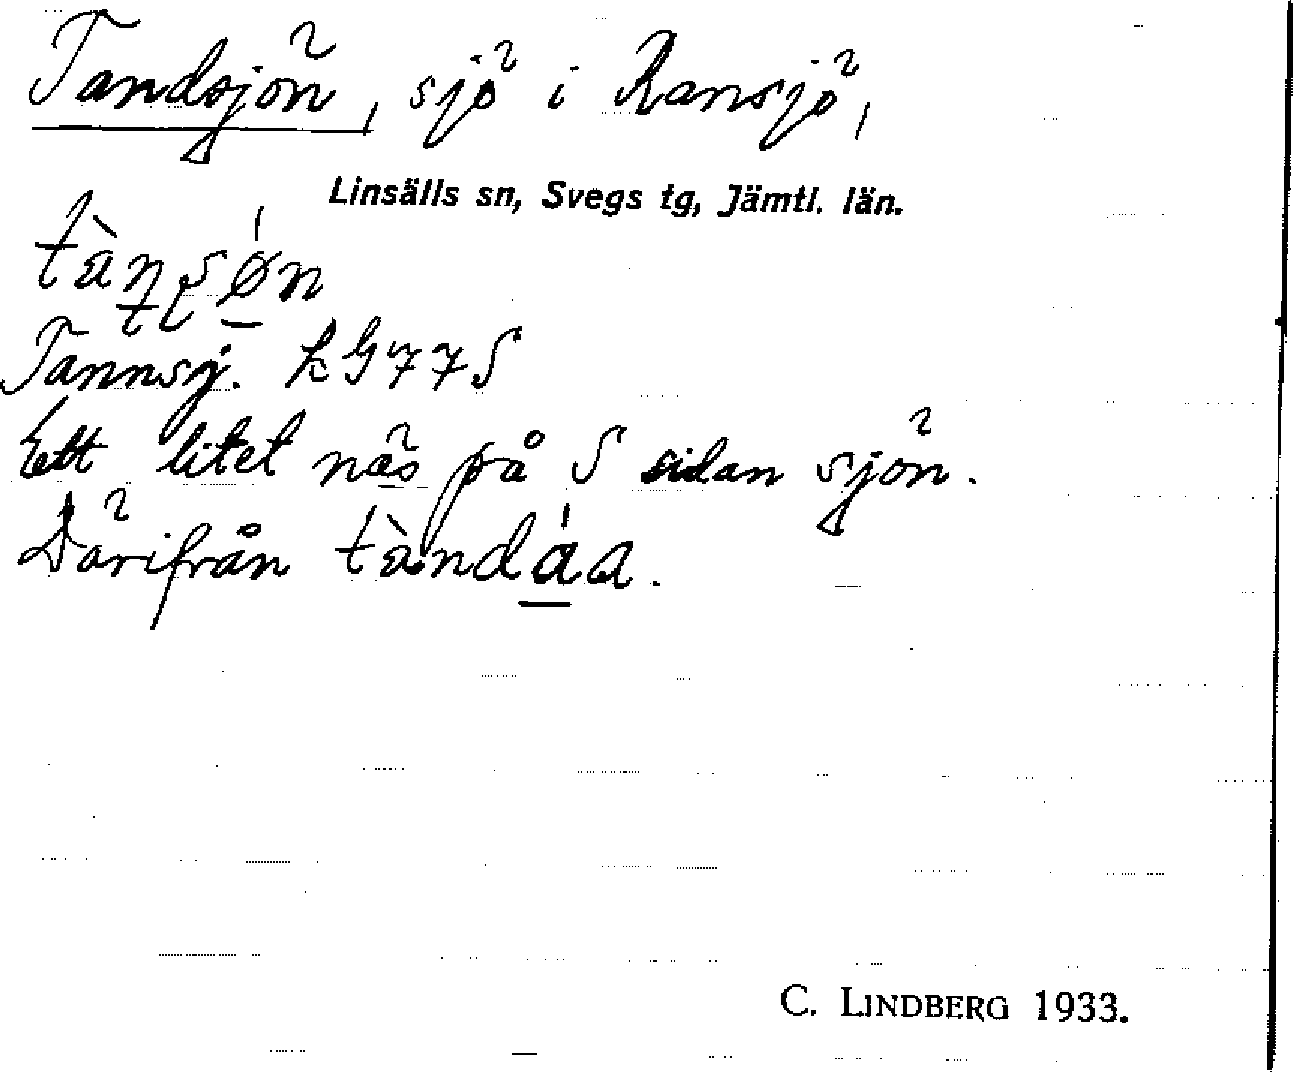 Tandsjön, sjö i Ransjö,
Linsälls sn, Svegs tg, Jämtl. län.
Tannsj. kG77S
Ett litet näs på S sidan sjön.
Därifrån tàndáa.
C. LINDBERG 1933.